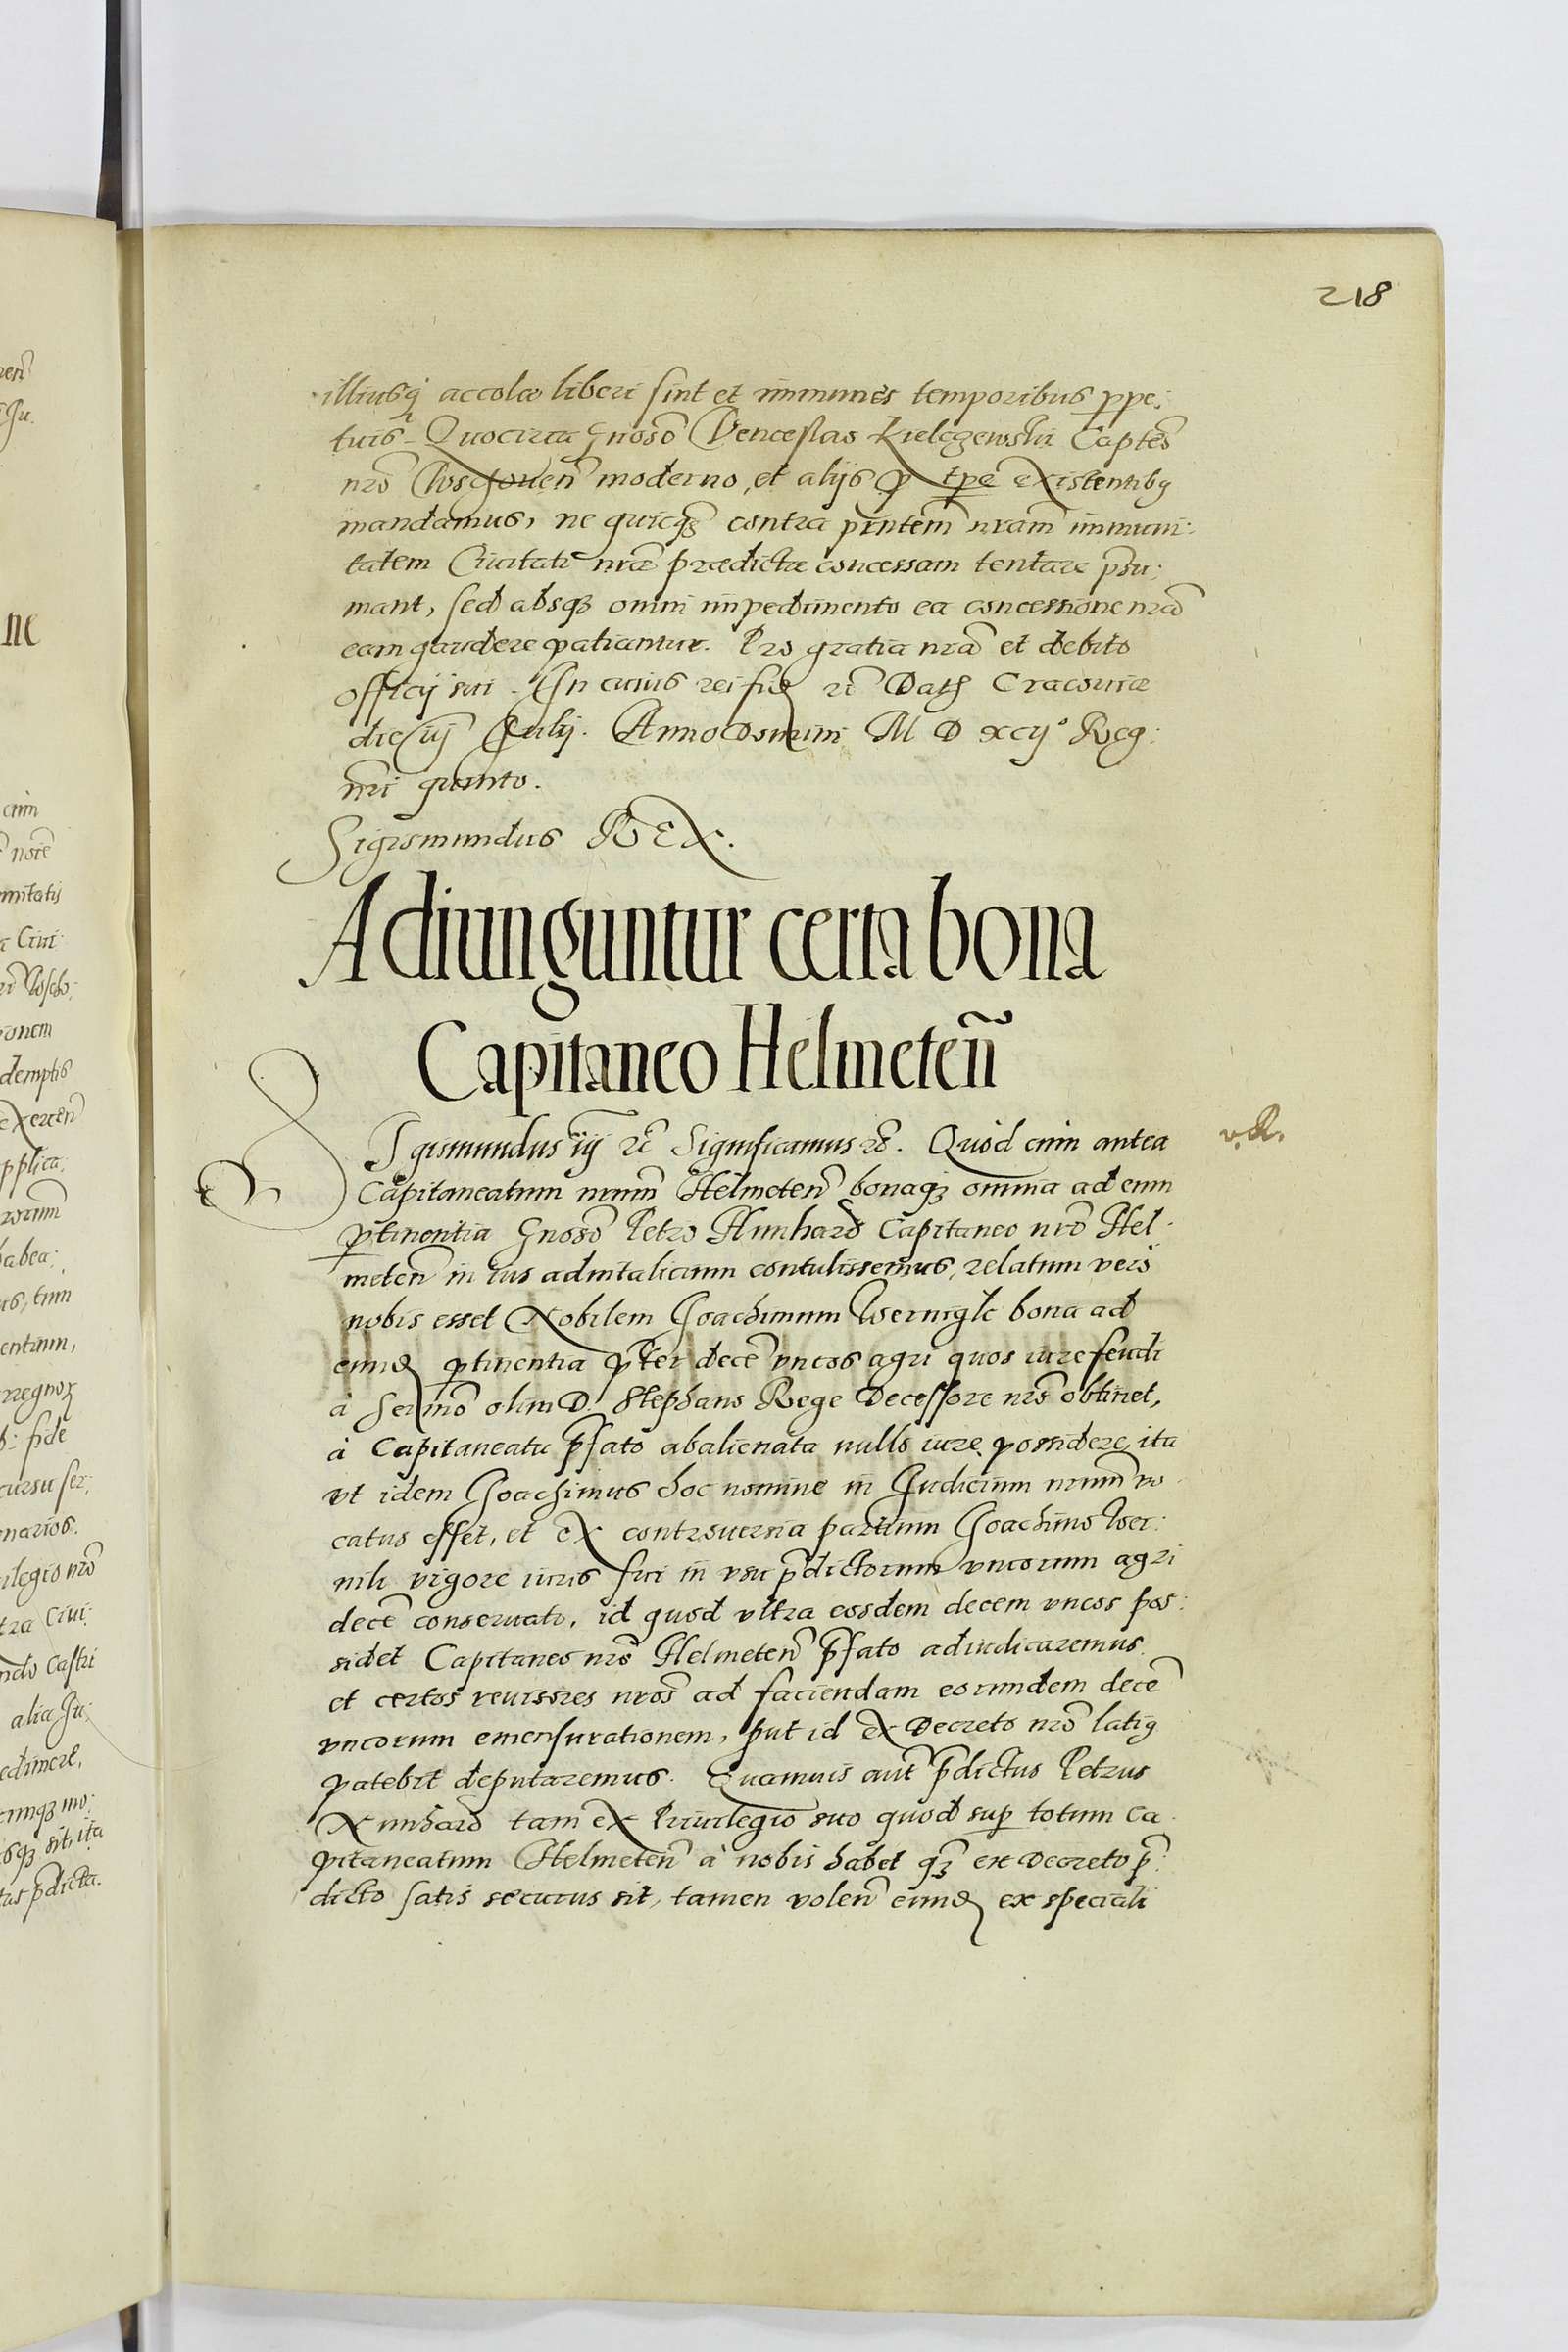 218
illiusq accolæ liberi sint et immunes temporibus ppe:
tuis. Quocirca Gnoso Venceslao Kielczewski Captēo
nrō moderno, et alijs p tpē existentibq
mandamus, ne quicqz contra pntem nram immuni:
tatem Ciuitati nræ prædictæ concessam tentare psu:
mant, sed absqz omni impedimento ea concessione nrā
eam gaudere patiantur. Pro gratia nrā et debito
officij sui. In cuius rei fid. rc Dat. Cracouiæ
die iij Julij. Anno Domini M D xcij° Reg:
nri quinto.
Sigismundus REX.
Adiunguntur certa bona
Capitaneo Helmeteñ
Sigismundus iij rc Significamus rc. Quod cum antea
v.R.
Capitaneatum nrum Helmeteñ bonaqz omnia ad eum
ptinentia Gnoso Petro Nunhard Capitaneo nrō Hel-
meteñ in ius aduitalicium contulissemus, relatum vero
nobis esset Nobilem Joachimum Wernigk bona ad
eund. ptinentia pter decē vncos agri quos iure feudi
à Sermō olim D. Stephano Rege Decessore nrō obtinet,
à Capitaneatu pfato abalienata nullo iure possidere, ita
vt idem Joachimus hoc nomine in Judicium nrum vo
catus esset, et ex controuersia partium Joachimo Wer:
nik vigore iuris sui in vsu pdictorum vncorum agri
decē conseruato, id quod vltra eosdem decem vncos pos:
sidet Capitaneo nrō Helmeteñ pfato adiudicaremus
et certos reuisores nros ad faciendam eorundem decē
vncorum emensurationem, put id ex Decreto nrō latiq
patebit deputaremus. Quamuis aut pdictus Petrus
Nunhard tam ex Priuilegio suo quod sup totum Ca
pitaneatum Helmeteñ à nobis habet qz ex Decreto p:
dicto satis securus sit, tamen voleñ eund. ex speciali